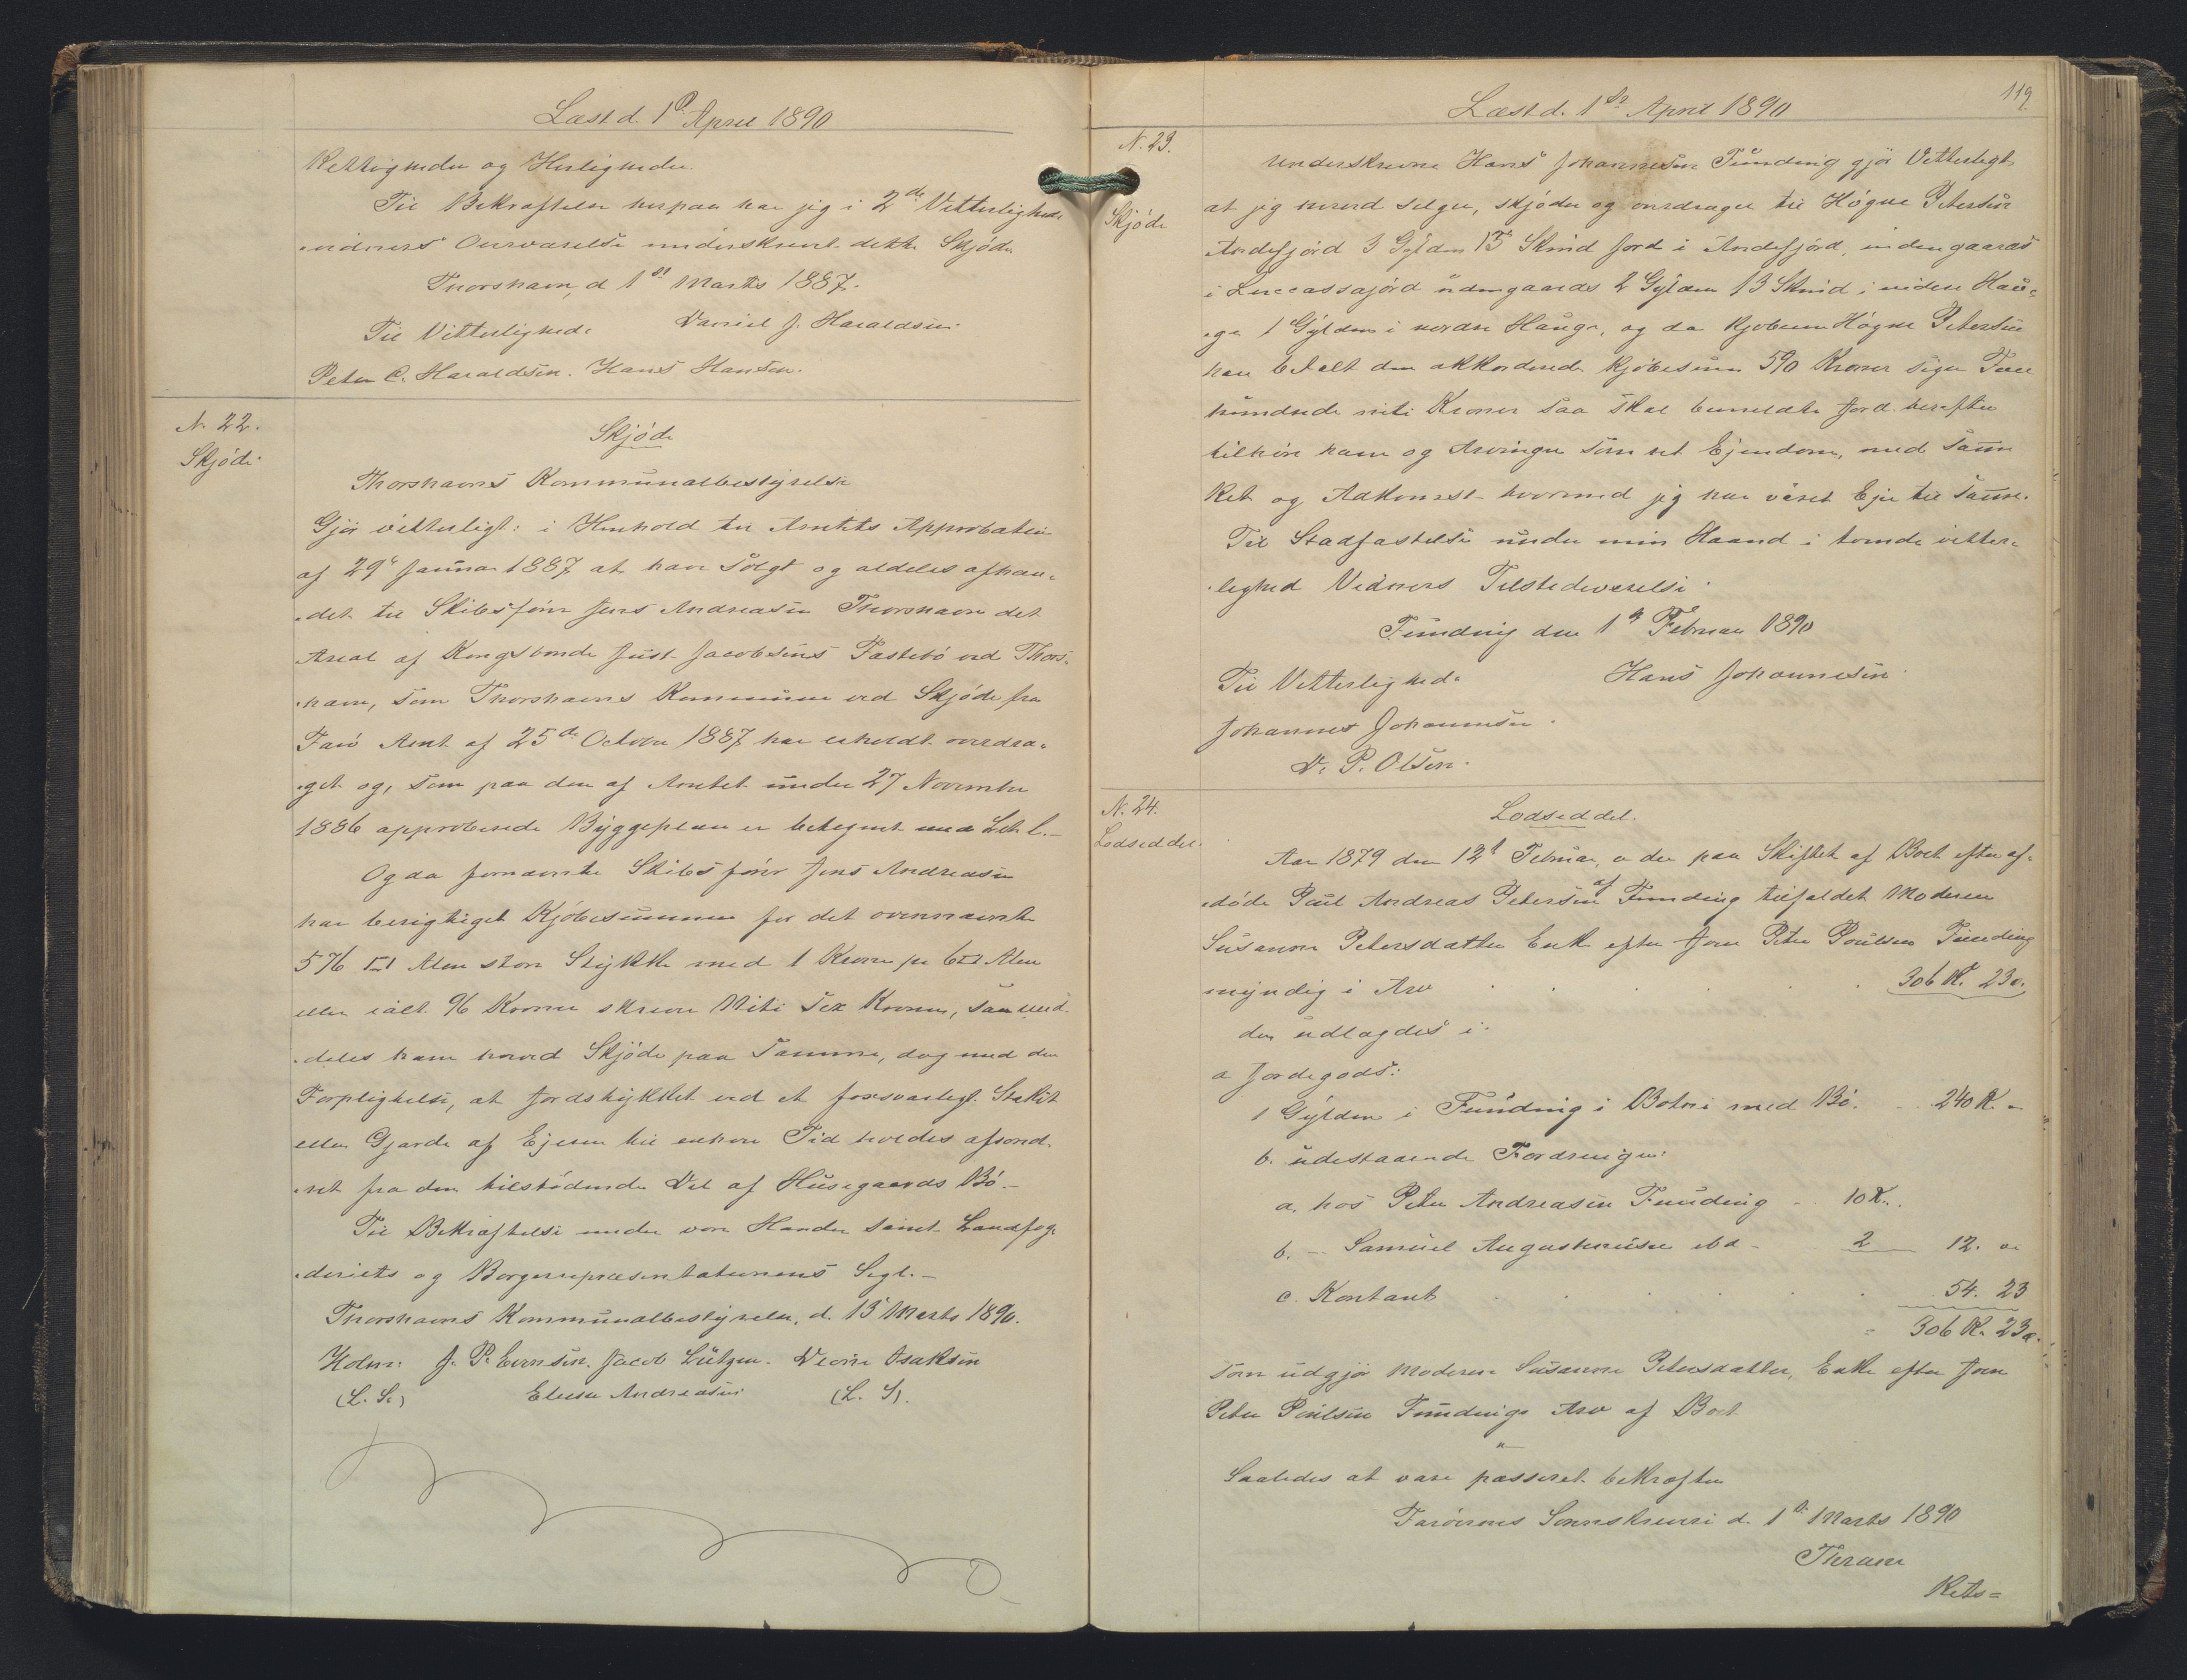 Læst d. 1ste April 1890
Rettigheder og Herligheder.
Til Bekræftelse herpaa har jeg i 2de Vitterligheds
vidners Overværelse underskrevet dette Skjøde
Thorshavn, d 1st Marts 1887.
Til Vitterlighed. Daniel J. Haraldsen.
Peter C. Haraldsen. Hans Hansen.
N. 22.
Skjöde
Skjöde
Thorshavns Kommunalbestyrelse
Gjör vitterligt: i Henhold til Amtets Approbation
af 29de Januar 1887 at have solgt og aldeles afhæn-
det til Skibsförer Jens Andreasen Thorshavn det
Areal af Kongsbonde Just Jacobsens Fæstebö ved Thors-
havn, som Thorshavns Kommune ved Skjöde fra
Færö Amt af 25de October 1887 har erholdt overdra-
get og, som paa den af Amtet under 27 November
1886 approberede Byggeplan er betegnet med Litr. C.-
Og da fornævnte Skibsförer Jens Andreasen
har berigtiget Kjöbesummen for det ovennævnte
576 □ Alen store Stykke med 1 Krone pr 6 □ Alen
eller ialt 96 Kroner skrive Niti Sex Kroner, saa med-
deles ham herved Skjöde paa Samme, dog med den
Forpligtelse, at Jordstykket ved et forsvarligt Stakit
eller Gjærde af Ejeren til enhver Tid holdes afsond-
ret fra den tilstödende Del af Husegaards Bö.-
Til Bekræftelse under vore Hænder samt Landfog-
deriets og Borgerrepræsentationens Segl.-
Thorshavns Kommunalbestyrelse, d. 15 Marts 1890.
Holm. J. P. Evensen. Jacob Lützen. Isaksen
(L. S.) Andreasen (L. S).
Læst d. 1ste April 1890
119
N. 23.
Skjöde
Underskrevne Hans Johannesen Funding gjör Vitterligt
at jeg herved selger, skjöder og overdrager til Högne Petersen
Andefjord 3 Gylden 15 Skind Jord i Andefjord, indengaards
i udengaards 2 Gylden 13 Skind i Hau-
ge 1 Gylden i nordre Hauge, og da Kjöberen Högne Petersen
har betalt den akkorderede Kjöbesum 590 Kroner siger Fem
hundrede niti Kroner saa skal bemeldte Jord herefter
tilhöre ham og Arvinger som ret Ejendom, med samme
Ret og Adkomst hvormed jeg har været Ejer til Samme.
Til Stadfæstelse under min Haand i tvende vitter-
lighed Vidners Tilstedeværelse.
Funding den 1ste Februar 1890
Til Vitterlighed. Hans Johannesen
Johannes Johannesen.
D. P. Olsen.
N. 24.
Lodseddel.
Lodseddel.
Aar 1879 den 12te Februar, er der paa Skiftet af Boet efter af-
döde Poul Andreas Petersen af Funding tilfaldet Moderen
Susanne Petersdatter Enke efter Joen Peter Poulsen Funding
myndig i Arv . . . . . . 306 Kr. 23 ø.
der udlagdes i.
a Jordegods:
1 Gylden i Funding i Botni med Bö. - 240 K. "
b. udestaaende Fordringer:
a. hos Peter Andreasen Funding - 10 K.
b. - Samuel Augustinusen ibd - 2 12. "
c. Kontant . . . . . 54. 23
= 306 K. 23 ø.
som udgjör Moderen Susanne Petersdatter, Enke efter Joen
Peter Poulsen Fundings Arv af Boet
"
Saaledes at være passeret bekræfter
Færöernes Sorenskriveri d. 1ste Marts 1890
Rets=